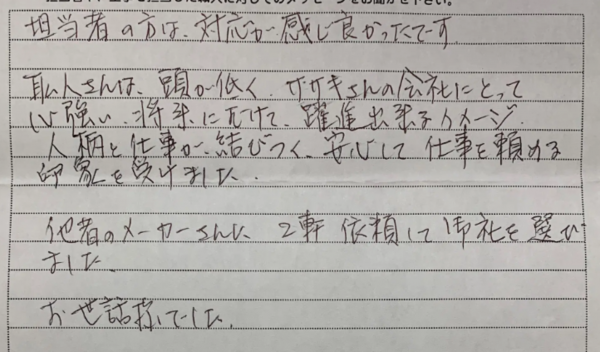 担当者の方は、対応が感じ良かったです
職人さんは、頭が低く、ササキさんの会社にとって
心強い、将来に向けて、躍進出来るイメージ.
人柄と仕事が、結びつく、安心して仕事を頼める
印象を受けました.
他者のメーカーさんに 2軒 依頼して御社を選び
ました.
お世話様でした.